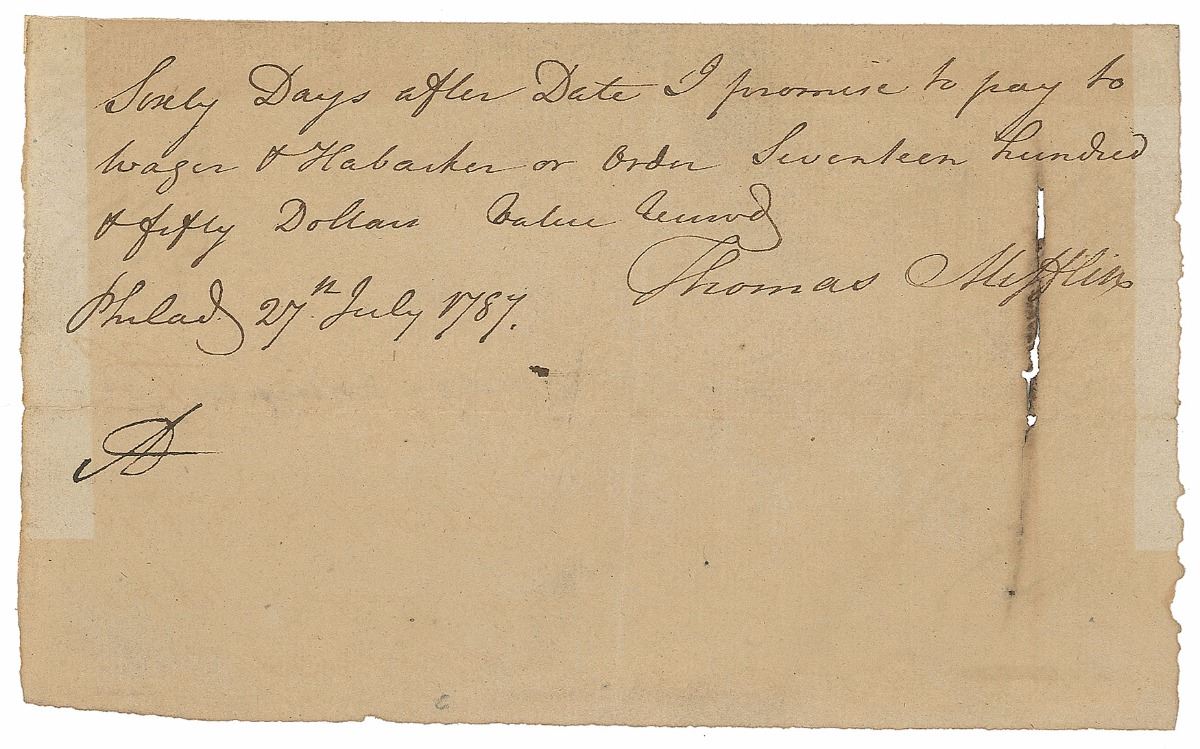 Sixty Days after Date I promise to pay to
Wager & Habacker or order Seventeen hundred
& fifty Dollars Value Receivd
Thomas Mifflin
Philad. 27th July 1787.